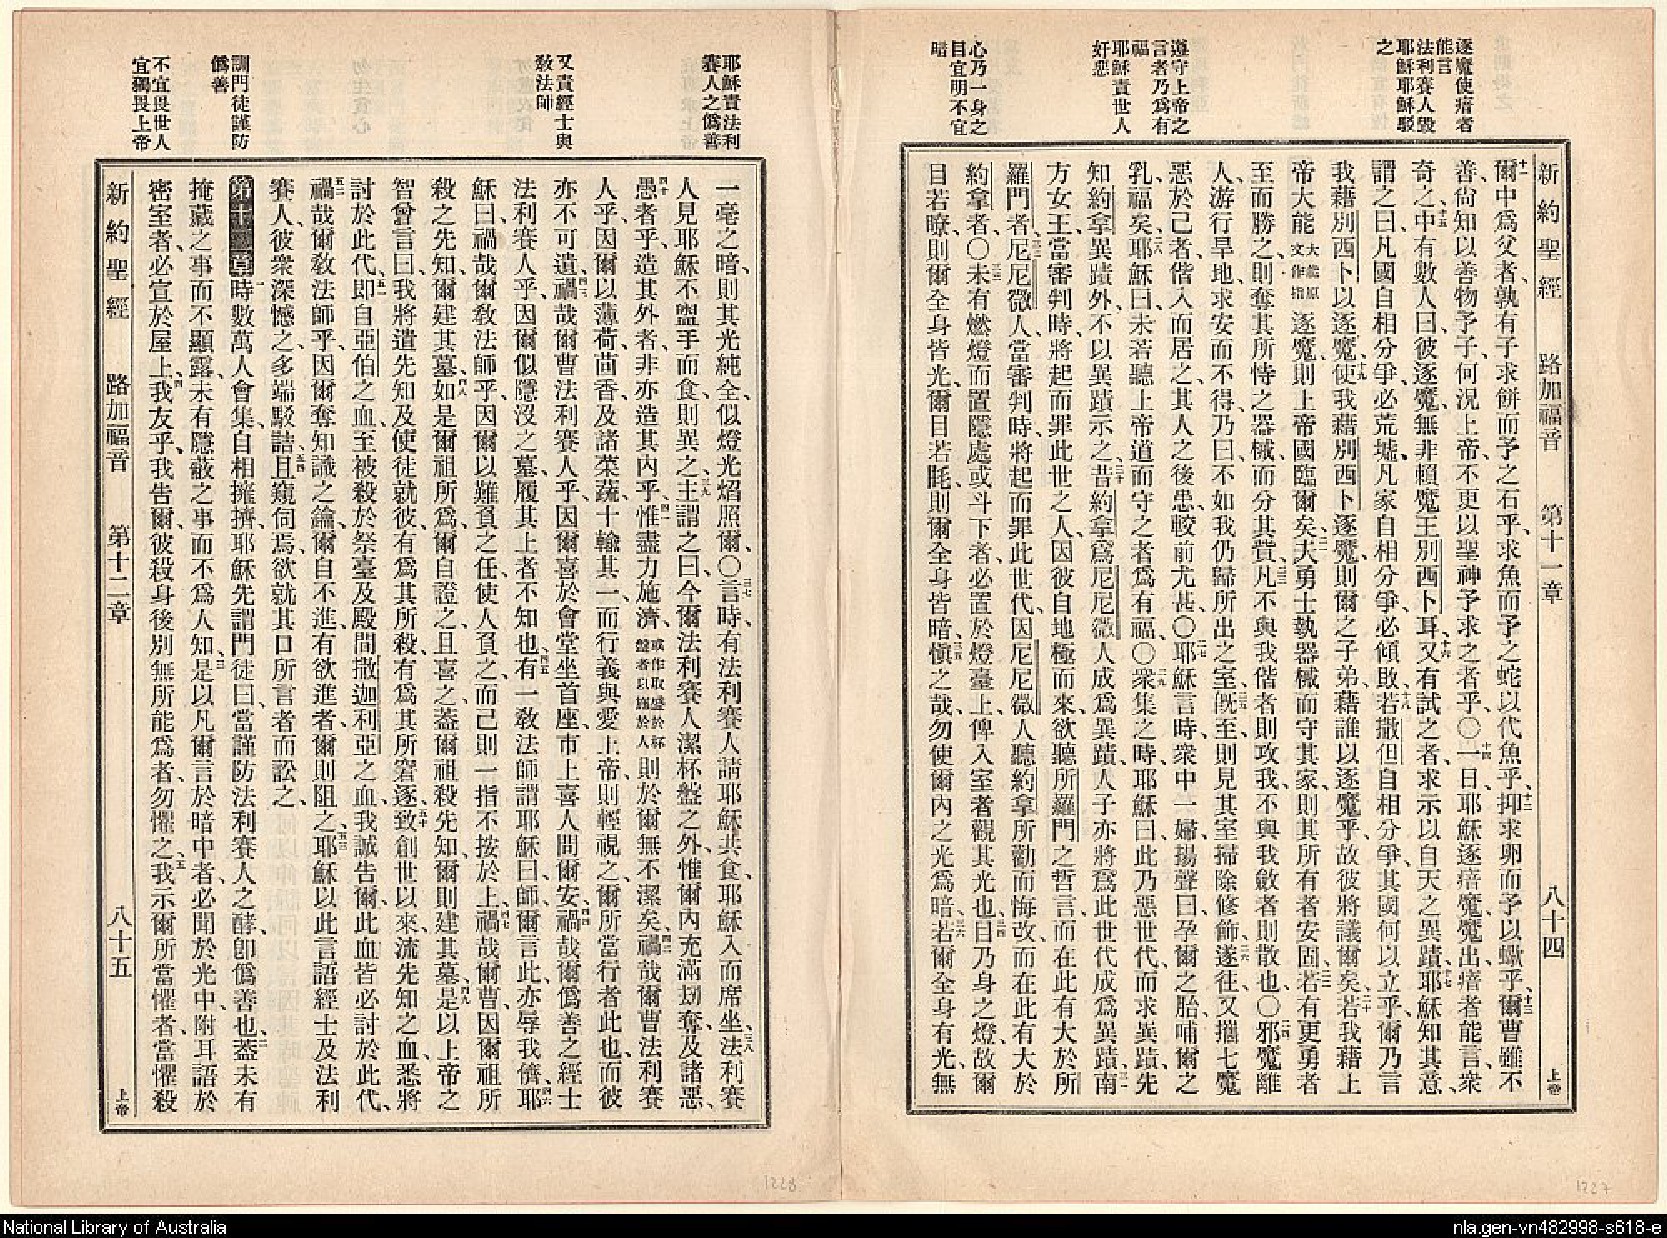 逐魔使瘖者
能言
法利賽人毀
耶穌耶穌駁
之
遵守上帝之
言者乃爲有
福
耶穌責世人
奸惡
心乃一身之
目宜明不宜
暗
新約聖經 路加福音 第十一章 八十四 上帝
十一爾中爲父者、孰有子求餅而予之石乎、求魚而予之蛇以代魚乎、十二抑求卵而予以蠍乎、十三爾曹雖不
善、尙知以善物予子、何況上帝不更以聖神予求之者乎〇十四一日耶穌逐瘖魔、魔出瘖者能言、衆
奇之、十五中有數人曰、彼逐魔、無非賴魔王別西卜耳、十六又有試之者、求示以自天之異蹟、十七耶穌知其意、
謂之曰、凡國自相分爭、必荒墟、凡家自相分爭、必傾敗、十八若撒但自相分爭、其國何以立乎、爾乃言
我藉別西卜以逐魔、十九使我藉別西卜逐魔、則爾之子弟藉誰以逐魔乎、故彼將議爾矣、二十若我藉上
帝大能大能原文作指逐魔、則上帝國臨爾矣、二一夫勇士執器械而守其家、則其所有者安固、二二若有更勇者
至而勝之、則奪其所恃之器械、而分其貲、二三凡不與我偕者則攻我、不與我斂者則散也〇二四邪魔離
人、游行旱地、求安而不得、乃曰、不如我仍歸所出之室、二五旣至、則見其室掃除修飾、二六遂往、又攜七魔
惡於己者、偕入而居之、其人之後患、較前尤甚〇二七耶穌言時、衆中一婦、揚聲曰、孕爾之胎、哺爾之
乳、福矣、二八耶穌曰、未若聽上帝道而守之者爲有福〇二九衆集之時、耶穌曰、此乃惡世代、而求異蹟、先
知約拿異蹟外、不以異蹟示之、三十昔約拿爲尼尼微人成爲異蹟、人子亦將爲此世代成爲異蹟、三一南
方女王當審判時、將起而罪此世之人、因彼自地極而來、欲聽所羅門之哲言、而在此有大於所
羅門者、三二尼尼微人當審判時、將起而罪此世代、因尼尼微人聽約拿所勸而悔改、而在此有大於
約拿者〇三三未有燃燈而置隱處、或斗下者、必置於燈臺上、俾入室者觀其光也、三四目乃身之燈、故爾
目若瞭、則爾全身皆光、爾目若眊、則爾全身皆暗、三五愼之哉、勿使爾內之光爲暗、三六若爾全身有光、無
耶穌責法利
賽人之僞善
又責經士與
敎法師
訓門徒謹防
僞善
不宜畏世人
宜獨畏上帝
一毫之暗、則其光純全、似燈光焰照爾〇三七言時、有法利賽人請耶穌共食、耶穌入而席坐、三八法利賽
人見耶穌不盥手而食、則異之、三九主謂之曰、今爾法利賽人潔杯盤之外、惟爾內充滿刼奪及諸惡、
四十愚者乎、造其外者、非亦造其內乎、四一惟盡力施濟或作取盛於杯盤者以賙於人則於爾無不潔矣、四二禍哉爾曹法利賽
人乎、因爾以薄荷、茴香、及諸菜蔬、十輸其一、而行義與愛上帝則輕視之、爾所當行者此也、而彼
亦不可遺、四三禍哉爾曹法利賽人乎、因爾喜於會堂坐首座、市上喜人問爾安、四四禍哉爾僞善之經士
法利賽人乎、因爾似隱沒之墓、履其上者不知也、四五有一敎法師謂耶穌曰、師、爾言此、亦辱我儕、四六耶
穌曰、禍哉爾敎法師乎、因爾以難負之任使人負之、而己則一指不按於上、四七禍哉爾曹、因爾祖所
殺之先知、爾建其墓、四八如是爾祖所爲、爾自證之、且喜之、蓋爾祖殺先知、爾則建其墓、四九是以上帝之
智曾言曰、我將遣先知及使徒就彼、有爲其所殺、有爲其所窘逐、五十致創世以來、流先知之血、悉將
討於此代、五一卽自亞伯之血、至被殺於祭臺及殿間撒迦利亞之血、我誠告爾、此血皆必討於此代、
五二禍哉爾敎法師乎、因爾奪知識之鑰、爾自不進、有欲進者、爾則阻之、五三耶穌以此言語經士及法利
賽人、彼衆深憾之、多端駁詰、五四且窺伺焉、欲就其口所言者而訟之、
第十二章 一時數萬人會集、自相擁擠、耶穌先謂門徒曰、當謹防法利賽人之酵、卽僞善也、二蓋未有
掩藏之事而不顯露、未有隱蔽之事而不爲人知、三是以凡爾言於暗中者、必聞於光中、附耳語於
密室者、必宣於屋上、四我友乎、我告爾、彼殺身後別無所能爲者、勿懼之、五我示爾所當懼者、當懼殺
新約聖經 路加福音 第十二章 八十五 上帝
1228
1227
National Library of Australia
nla.gen-vn482998-s618-e